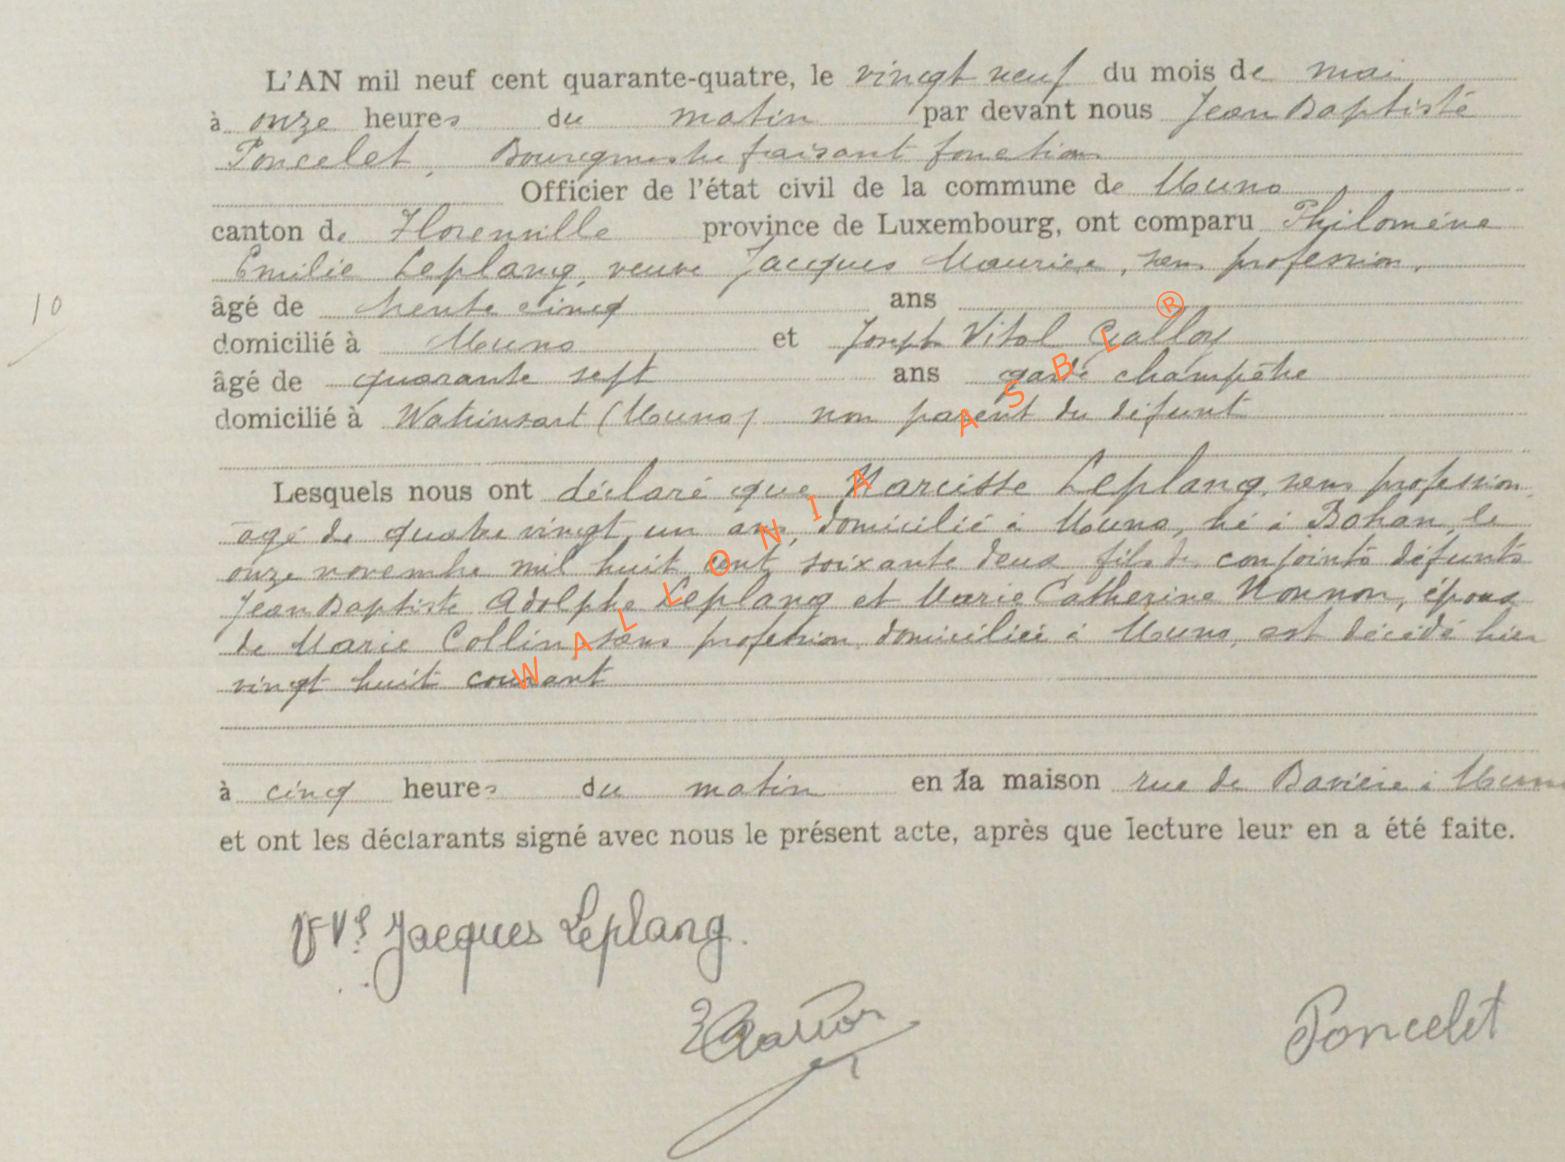 L'AN mil neuf cent quarante-quatre, le vingt neuf du mois de mai
à onze heures du matin par devant nous Jean Baptiste
Poncelet, Bourgmestre faisant fonction
Officier de l'état civil de la commune de Muno
canton de Florenville province de Luxembourg, ont comparu Philomène
Emilie Leplang, veuve Jacques Maurice, sans profession,
âgé de trente cinq ans
10
domicilié à Muno et Joseph Vital Galloy
âgé de quarante sept ans garde champêtre
domicilié à Watrinsart (Muno) non parent du défunt
Lesquels nous ont déclaré que Narcisse Leplang, sans profession
agé de quatre vingt un ans, domicilié à Muno, né à Bohan, le
onze novembre mil huit cent soixante deux fils de conjoints défunts
Jean Baptiste Adolphe Leplang et Marie Catherine Nonnon, époux
de Marie Collin sans profession domiciliée à Muno, est décédé hier
vingt huit courant
à cinq heures du matin en la maison rue de Bavière à Muno
et ont les déclarants signé avec nous le présent acte, après que lecture leur en a été faite.
Vve Jacques Leplang.
Poncelet
WALLONIA ASBL ®